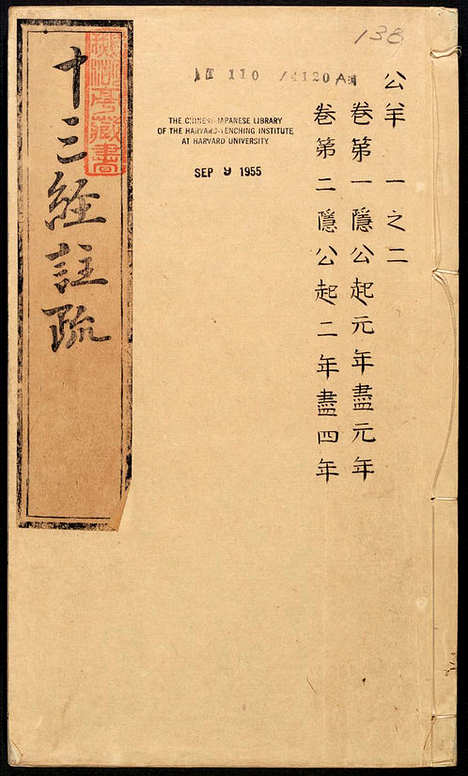 138
110 /4120A
公羊 一之二
卷第一隱公起元年盡元年
卷第二隱公起二年盡四年
THE CHINESE-JAPANESE LIBRARY
OF THE HARVARD-YENCHING INSTITUTE
AT HARVARD UNIVERSITY
SEP 9 1955
十三經註疏
藏書